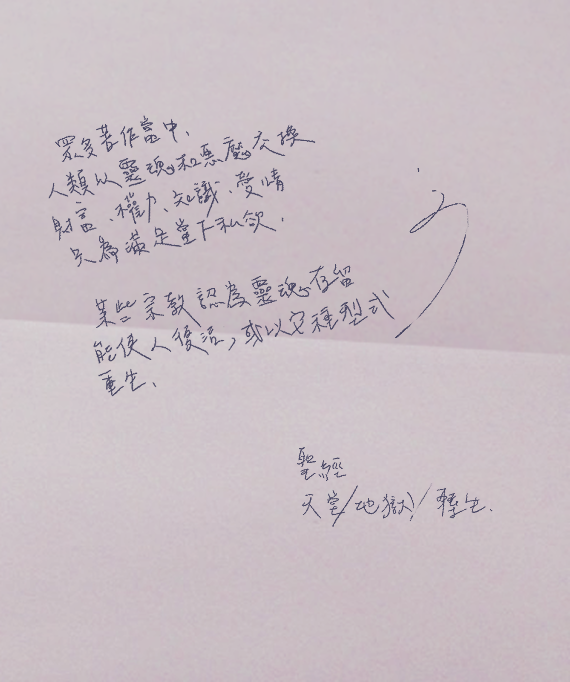 眾多著作當中、
人類以靈魂和惡魔交換
財富、權力、知識、愛情
只為滿足當下私欲.
某些宗教認為靈魂存留
能使人復活，或以它種型式
重生.
聖經
天堂/地獄/轉生.